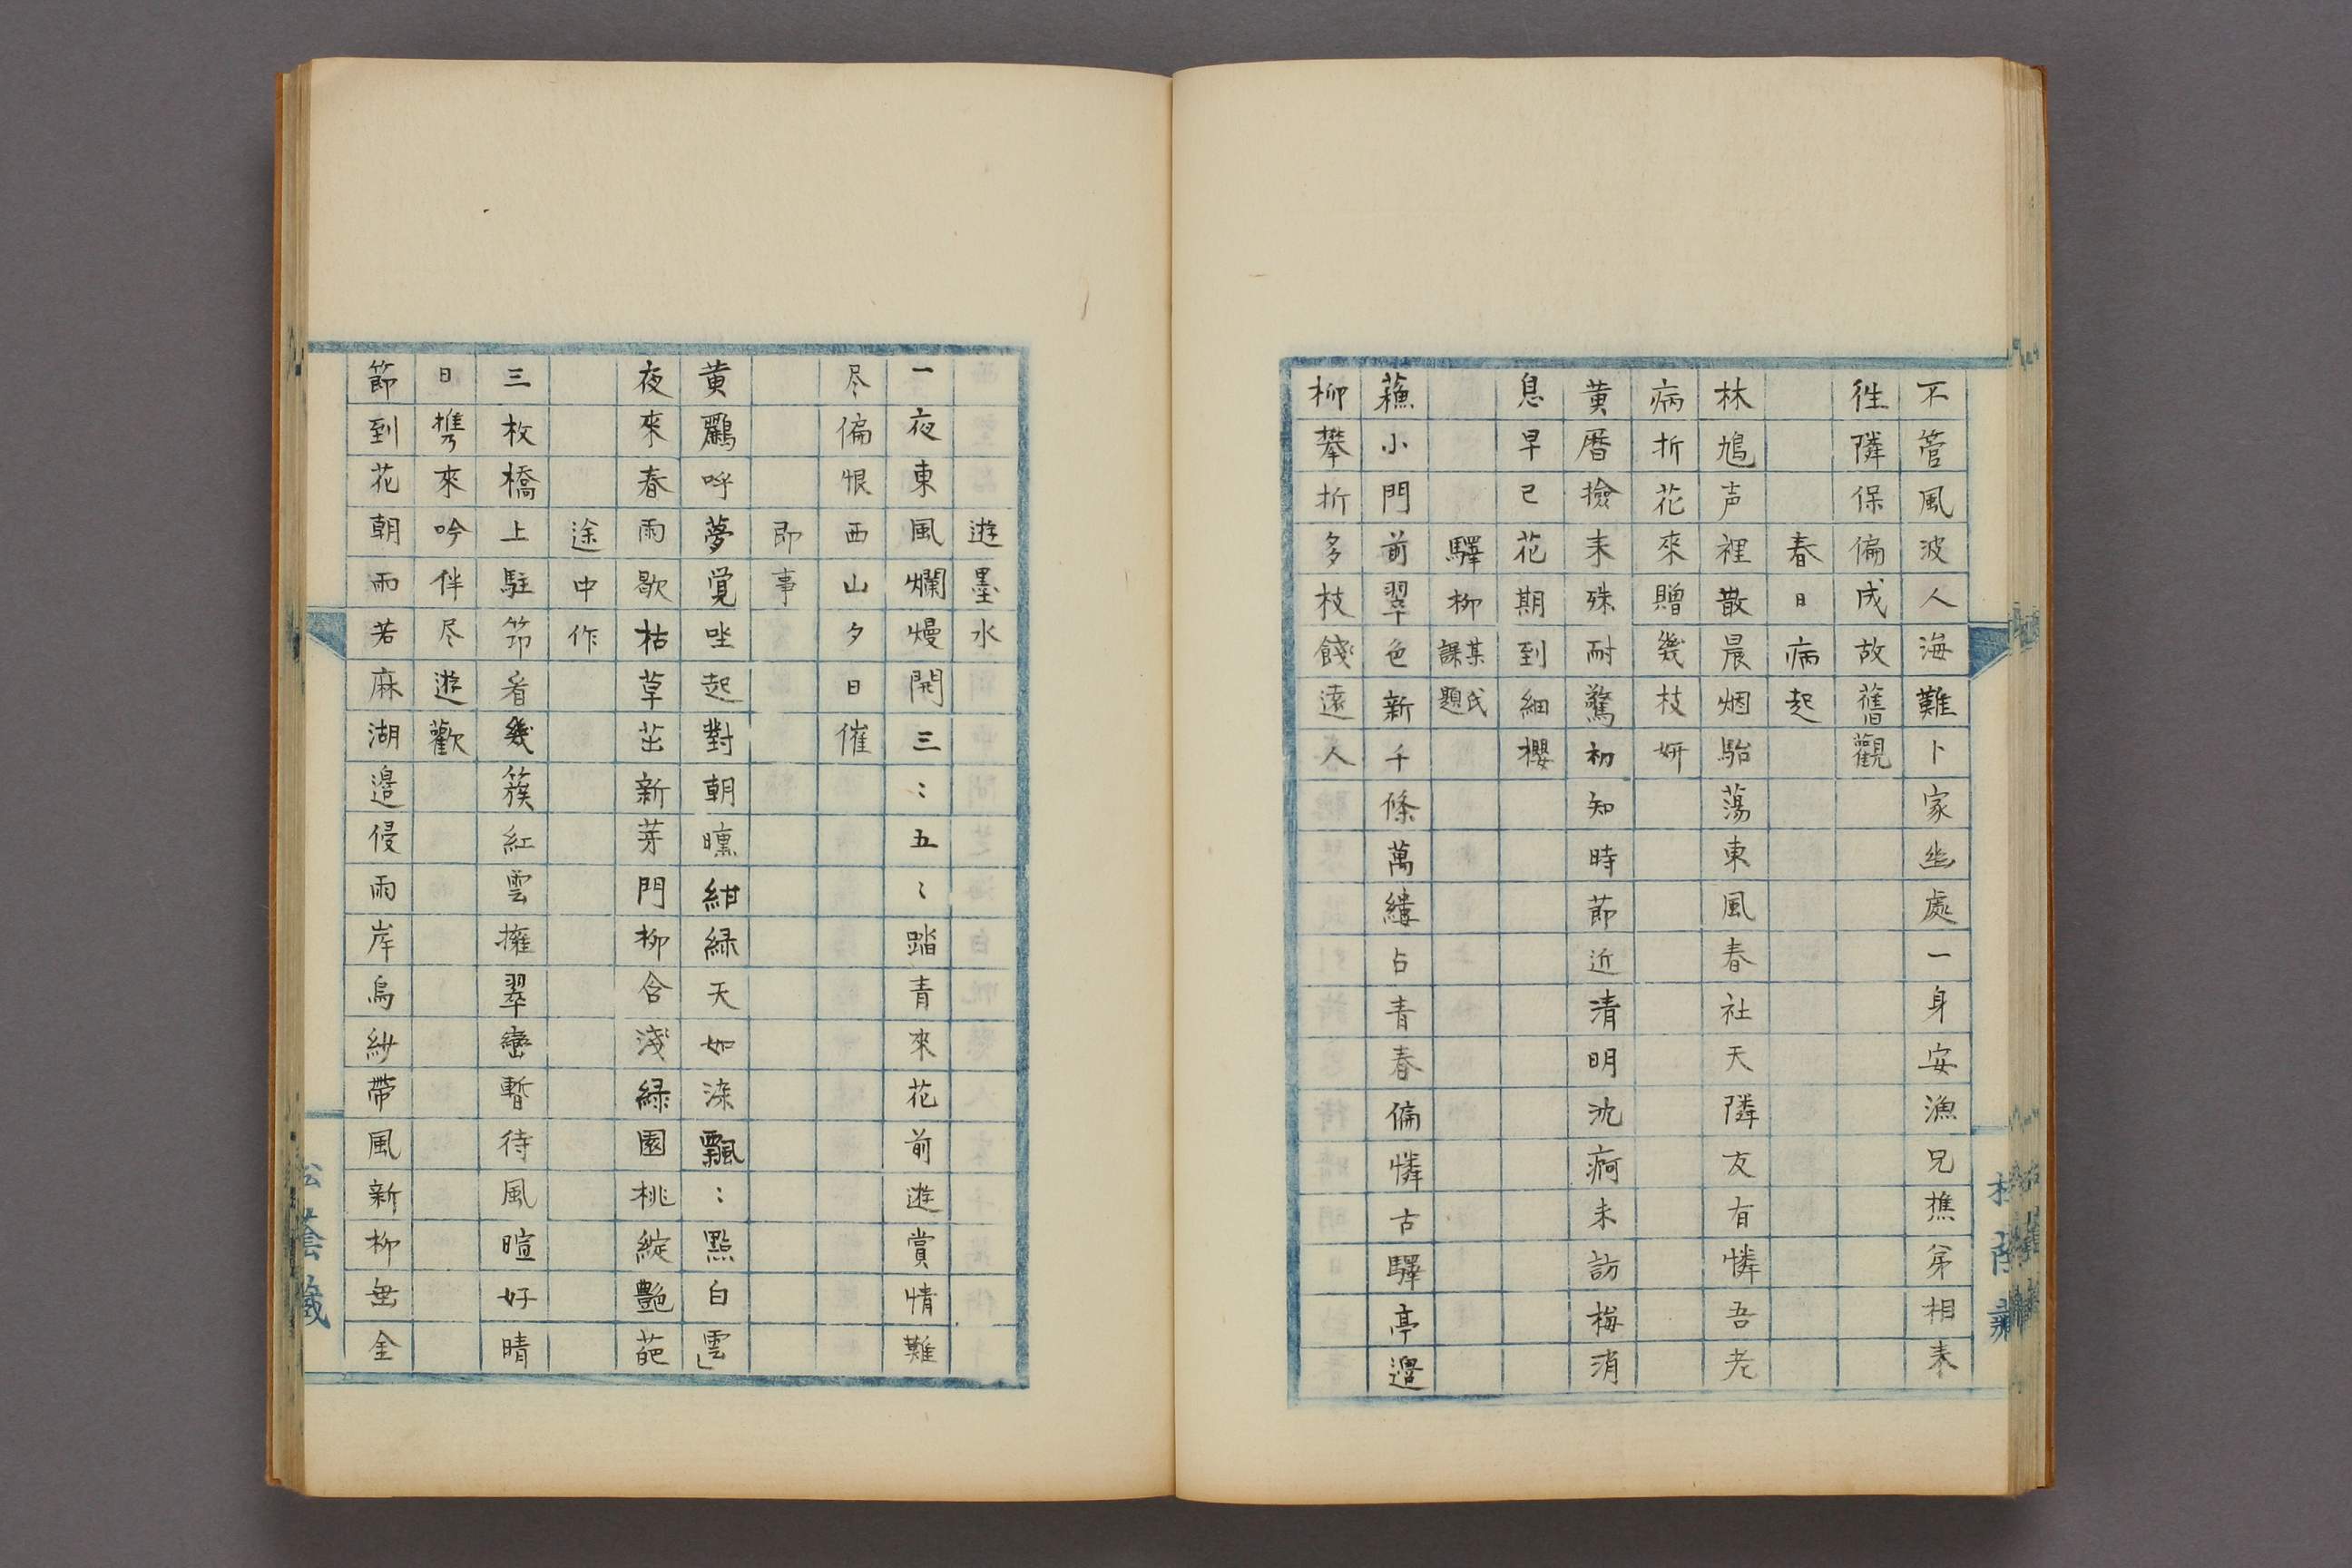 不管風波人海難卜家幽處一身安漁兄樵弟相来
徃隣保偏成故舊觀
春日病起
林鳩声裡散晨烟駘蕩東風春社天隣友有憐吾老
病折花來贈幾枝妍
黄暦撿来殊耐驚初知時節近清明沈痾未訪梅消
息早已花期到細櫻
驛柳某氏課題
蘓小門前翠色新千條萬縷占青春偏憐古驛亭邉
柳攀折多枝餞遠人
遊墨水
一夜東風爛熳開三〻五〻踏青來花前遊賞情難
尽偏恨西山夕日催
即事
黄鸝呼夢覚坐起對朝曛紺緑天如染飄〻點白雲」
夜來春雨歇枯草茁新芽門柳含淺緑園桃綻艶葩
途中作
三枚橋上駐笻看幾簇紅雲擁翠巒暫待風暄好晴
日携來吟伴尽遊歡
節到花朝雨若麻湖邉侵雨岸烏紗帶風新柳垂金
松蔭